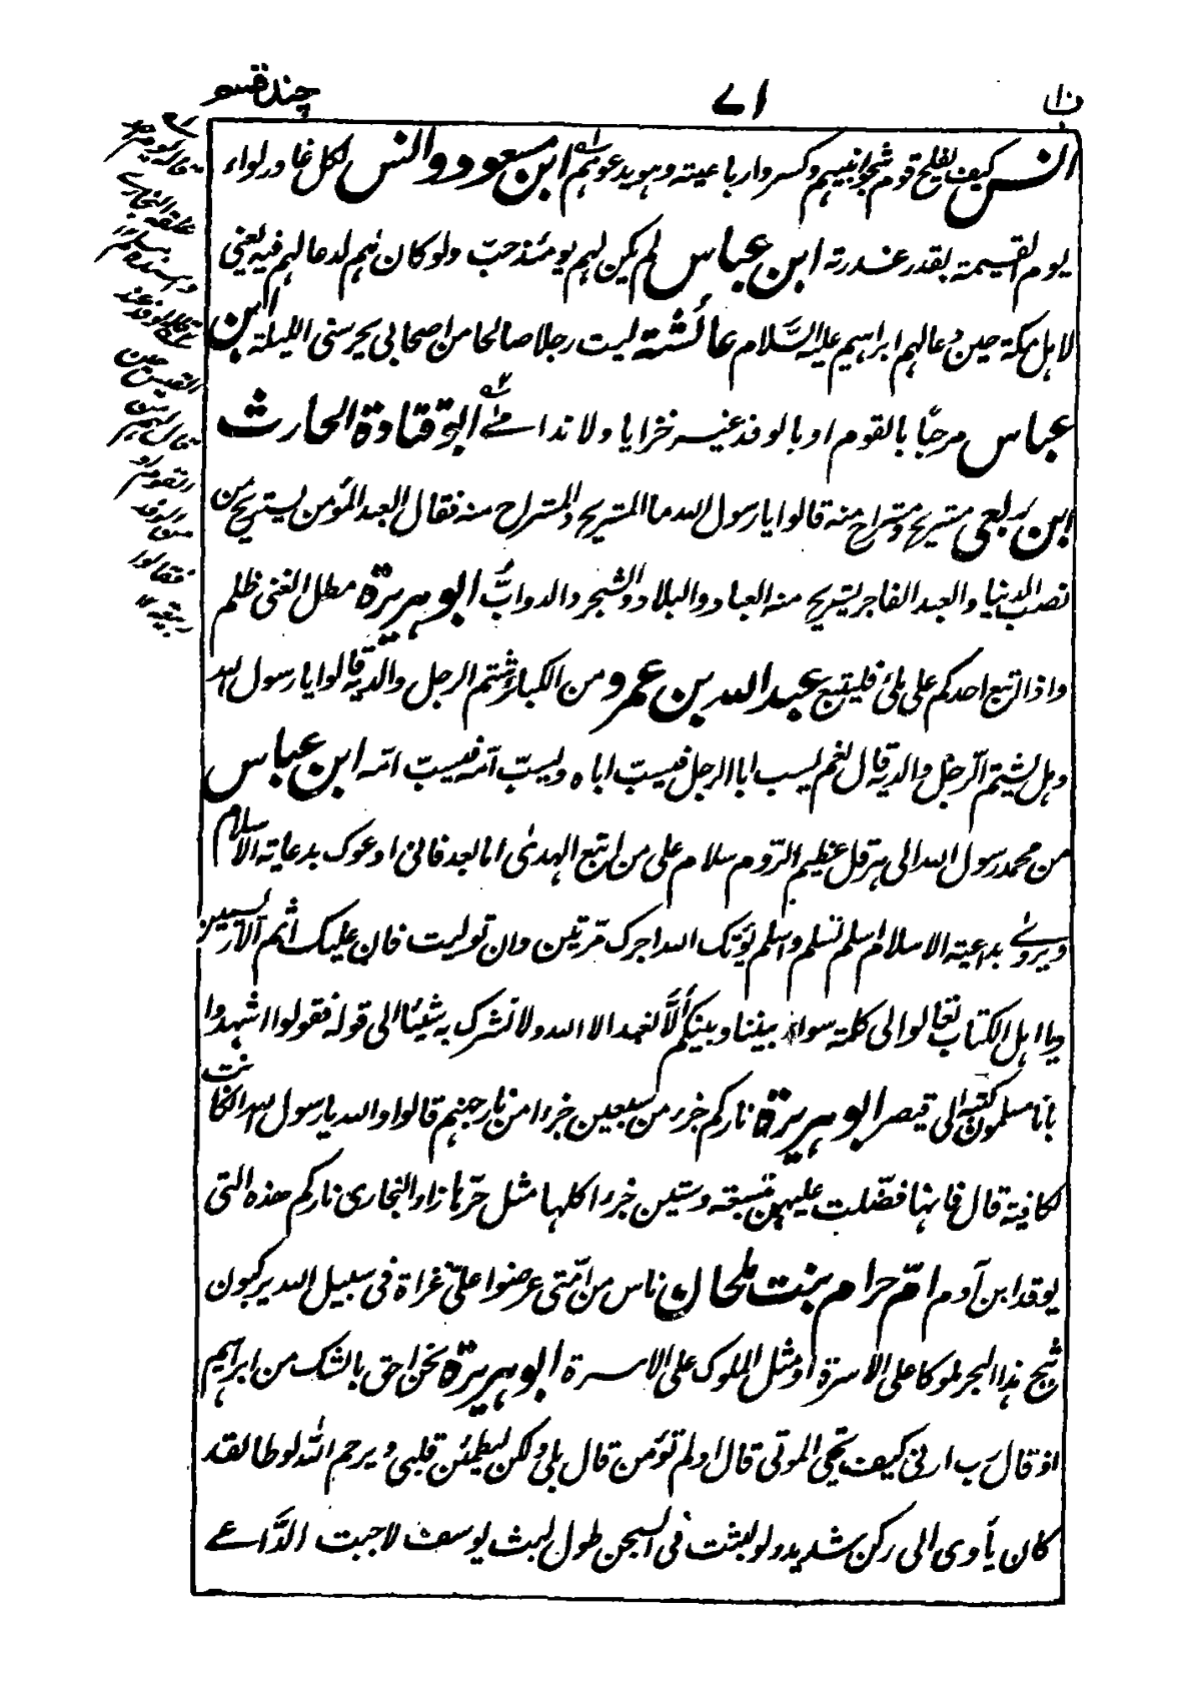 ق
۷۱
چند قسم
انس كيف يفلح قوم شجوا نبيهم وكسروا رباعيته وهو يدعوهم ابن مسعود و انس لكل غادر لواء
يوم القيمة بقدر غدرته ابن عباس لم يكن لهم يومئذ حبّ ولو كان لهم لدعا لهم فيه يعني
لاهل مكة حين دعا لهم ابراهيم عليه السَّلام عائشة ليت رجلا صالحا من اصحابي يحرسني الليلة ابن
عباس مرحبًا بالقوم او بالوفد غير خزايا ولا ندامىٰ ابو قتادة الحارث
ابن ربعي مستريح ومستراح منه قالوا يا رسول الله ما المستريح والمستراح منه فقال العبد المؤمن يستريح من
نصب الدنيا والعبد الفاجر يستريح منه العباد والبلاد والشجر والدوابُّ ابو هريرة مطل الغني ظلم
واذا اتبع احدكم على ملئ فليتبع عبد الله بن عمرو من الكبائر شتم الرجل والديه قالوا يا رسول الله
وهل يشتم الرجل والديه قال نعم يسب ابا الرجل فيسبّ اباه ويسبّ امّه فيسبّ امّه ابن عباس
من محمد رسول الله الى هرقل عظيم الرّوم سلام على من اتبع الهدىٰ اما بعد فاني ادعوك بدعاية الاسلام
ويروىٰ بداعية الاسلام اسلم تسلم واسلم يؤتك الله اجرك مرّتين وان توليت فان عليك اثم الاريسيين
ويا اهل الكتاب تعالوا الى كلمة سواء بيننا وبينكم ألَّا نعبد الا الله ولا نشرك به شيئا الى قوله فقولوا اشهدوا
بانا مسلمون كتبه الى قيصر ابو هريرة ناركم جزء من سبعين جزءا من نار جهنم قالوا والله يا رسول الله ان كانت
لكافية قال فانها فضّلت عليهن بتسعة وستين جزءا كلها مثل حرّها زاد البخاري ناركم هذه التي
يوقد ابن آدم امّ حرام بنت ملحان ناس من امّتي عرضوا عليّ غزاة في سبيل الله يركبون
ثبج هذا البحر ملوكا على الاسرة او مثل الملوك على الاسرة ابو هريرة نحن احق بالشك من ابراهيم
اذ قال رب ارني كيف تحي الموتى قال اولم تؤمن قال بلى ولكن ليطمئن قلبي ويرحم الله لوطا لقد
كان يأوى الى ركن شديد ولو لبثت في السجن طول لبث يوسف لاجبت الدَّاعي